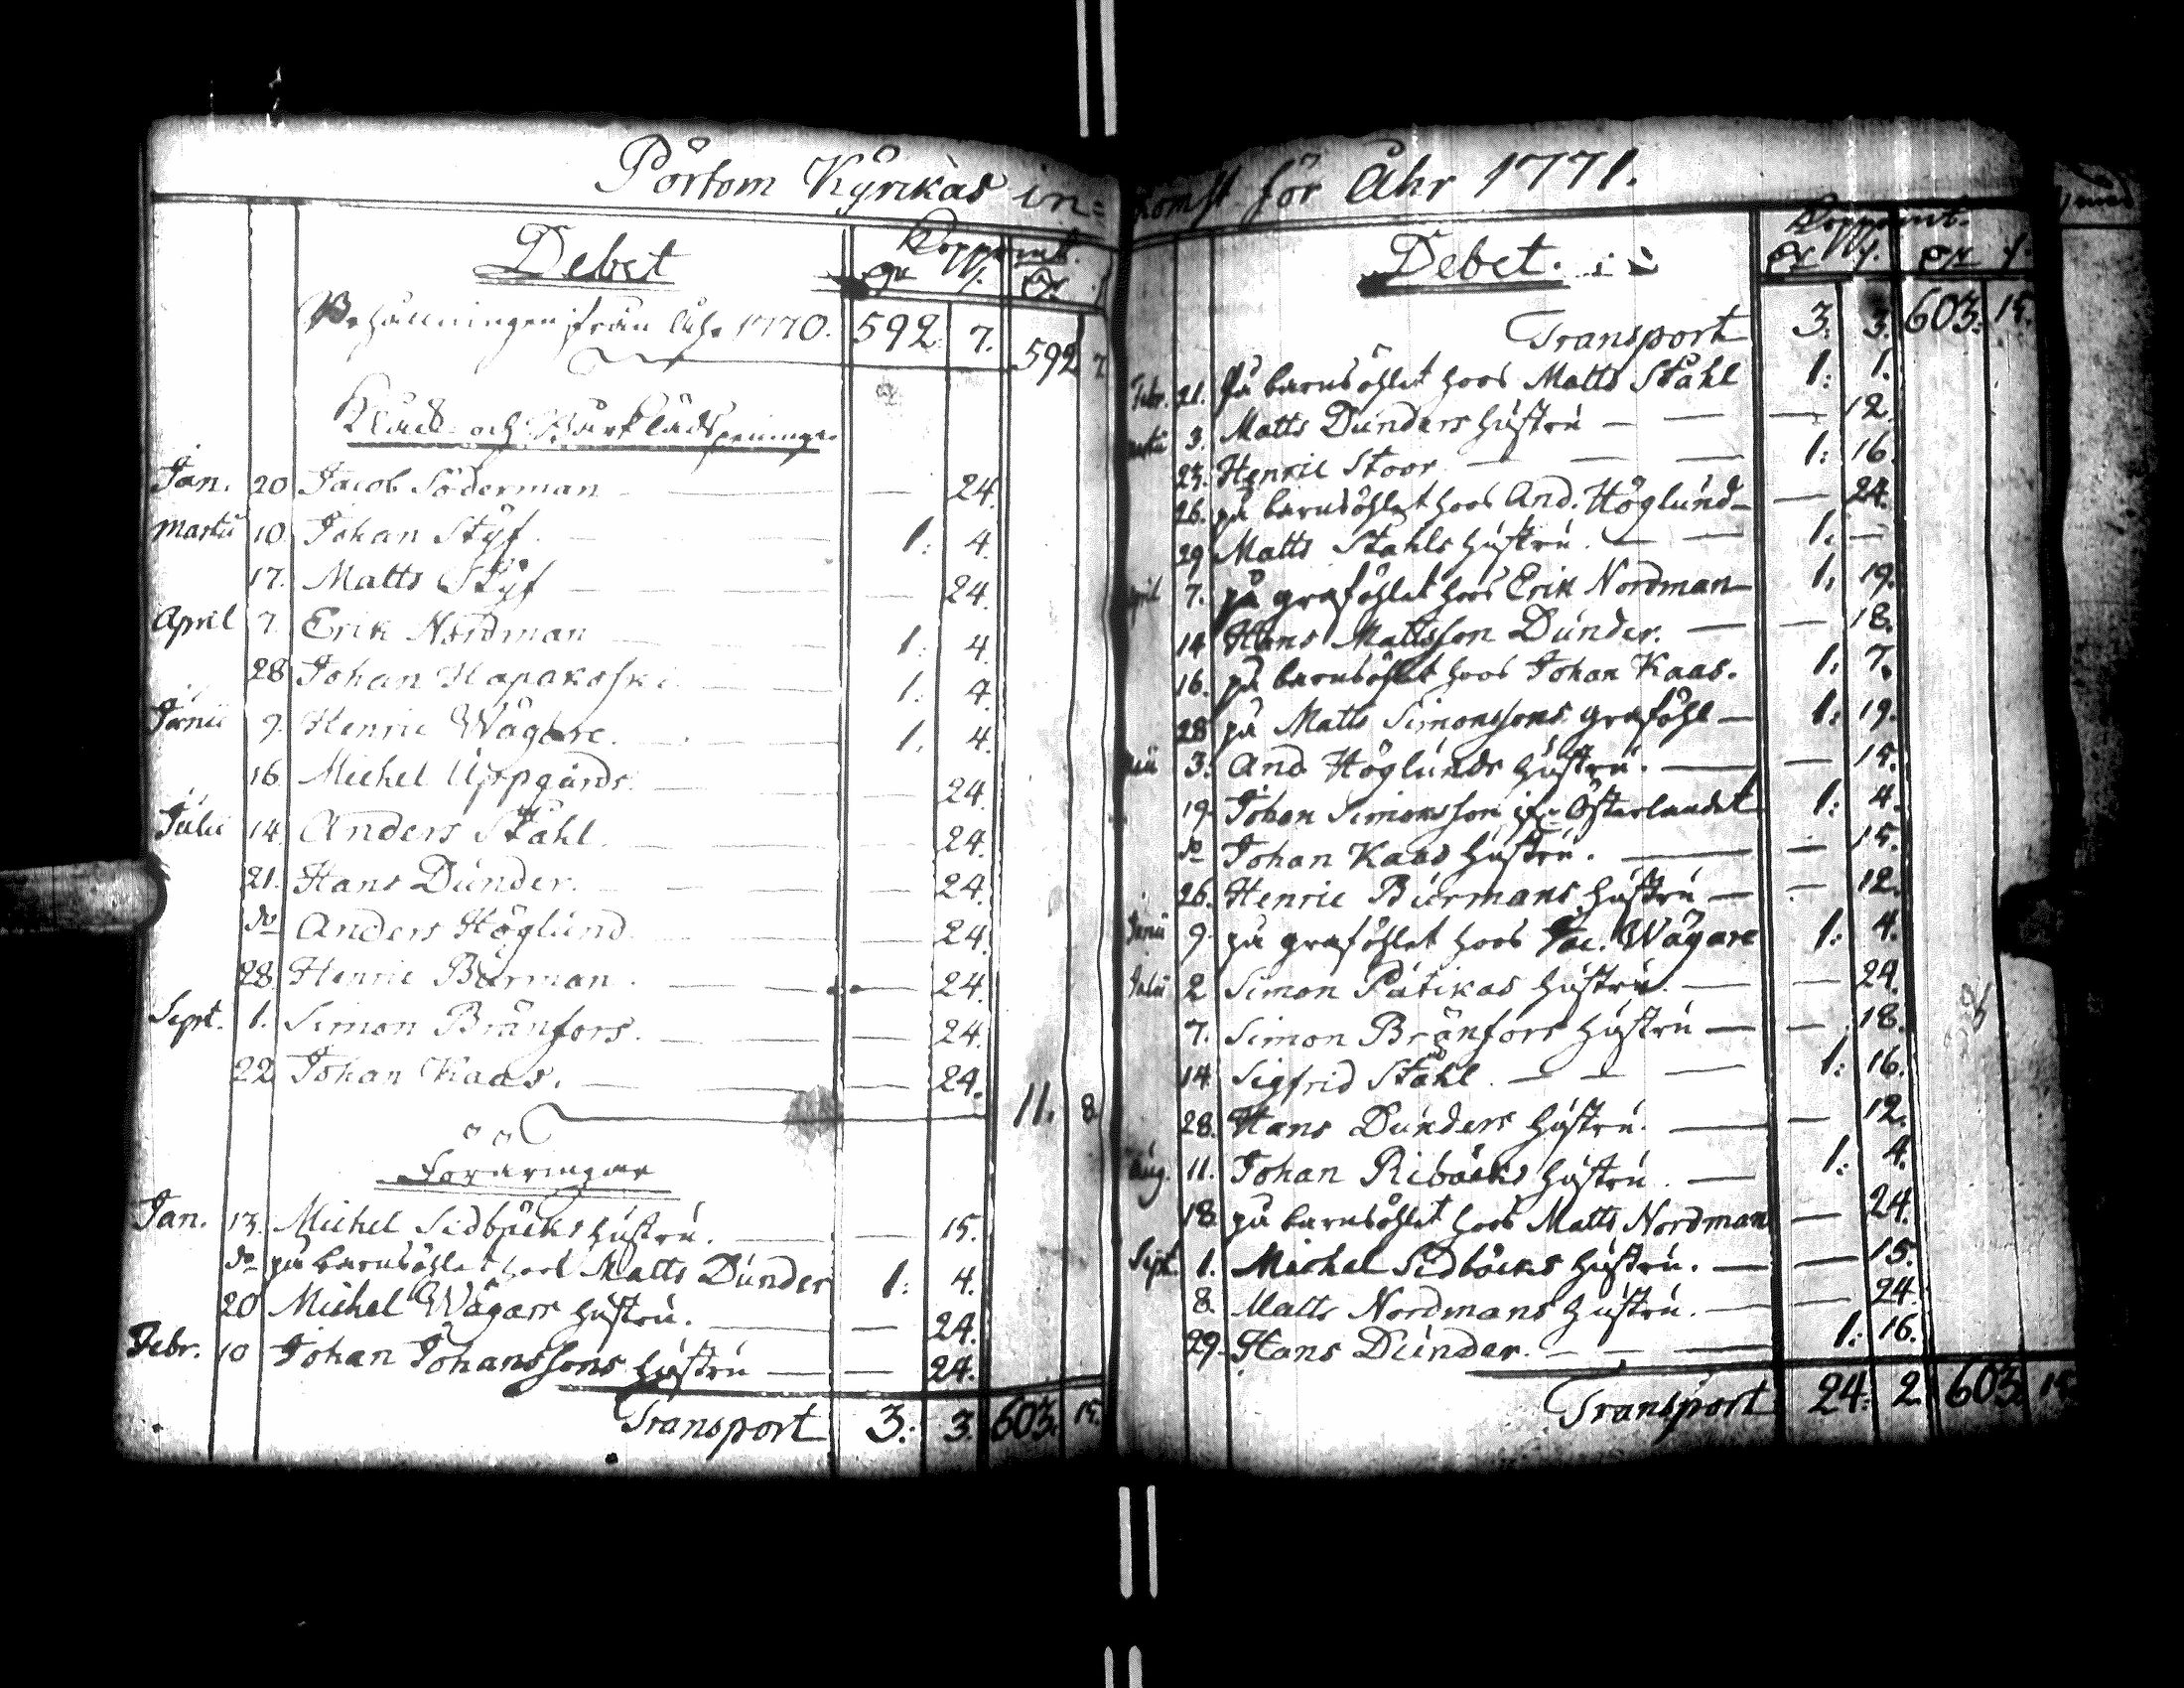 Pörtom Kÿrckas in=
Debet
Koppmt.
Dr. ß.
Dr. ß.
Behållningen från Åhr 1770. 592 7.
592 7
Klåck- och Bårklädspeningar
Jan. 20 Jacob Söderman — — 24.
Martii 10. Johan Stÿf. — 1: 4.
17. Matts Stÿf — — 24.
April 7. Erik Nordman — 1: 4.
28 Johan Hapakoski — 1: 4.
Junii 9. Henric Wägare. — 1. 4.
16. Michel Uppgårds. — — 24.
Julii 14. Anders Ståhl. — — 24.
21. Hans Dunder. — — 24.
do Anders Höglund — — 24.
28. Henric Burman. — — 24.
Sept. 1. Simon Brånfors. — — 24.
22 Johan Kaas. — — 24.
11. 8
Föräringar
Jan. 13. Michel Sidbäcks hustru. — — 15.
do på barnsöhlet hoos Matts Dunder 1: 4.
20 Michel Wägars hustru. — — 24.
Febr. 10 Johan Johanssons hustru — — 24.
Transport 3: 3. 603. 15.
komst för Åhr 1771.
Debet.
Koppmt.
Dr ß. Dr ß.
Transport 3. 3. 603. 15.
Febr. 21. På barnsöhlet hoos Matts Ståhl 1: 1.
Martii 3. Matts Dunders hustru — — 12.
23. Henric Stoor — — 1: 16.
26. på barnsöhlet hoos And. Höglund — — 24.
29 Matts Ståhls hustru. — — 1. —
April 7. på graföhlet hoos Erik Nordman — 1: 19.
14 Hans Mattsson Dunder. — — 18.
16. på barnsöhlet hoos Johan Kaas. 1: 7.
28 på Matts Simonssons graföhl — 1: 19.
Maii 3. And. Höglunds hustru. — — 15.
19. Johan Simonsson if. Österlandet 1: 4.
do Johan Kaas hustru. — — 15.
26. Henric Burmans hustru — — 12.
Junii 9. på graföhlet hoos Jac. Wägare 1: 4.
Julii 2 Simon Påtikas hustru. — — 24.
7. Simon Brånfors hustru — — 18.
14. Sigfrid Ståhl. — — 1: 16.
28. Hans Dunders hustru. — — 12.
Aug. 11. Johan Ribäcks hustru. — 1: 4.
18. på barnsöhlet hoos Matts Nordman — 24.
Sept. 1. Michel Sidbäcks hustru. — — 15.
8. Matts Nordmans hustru. — — 24.
29. Hans Dunder. — — 1: 16.
Transport 24: 2. 603. 15.